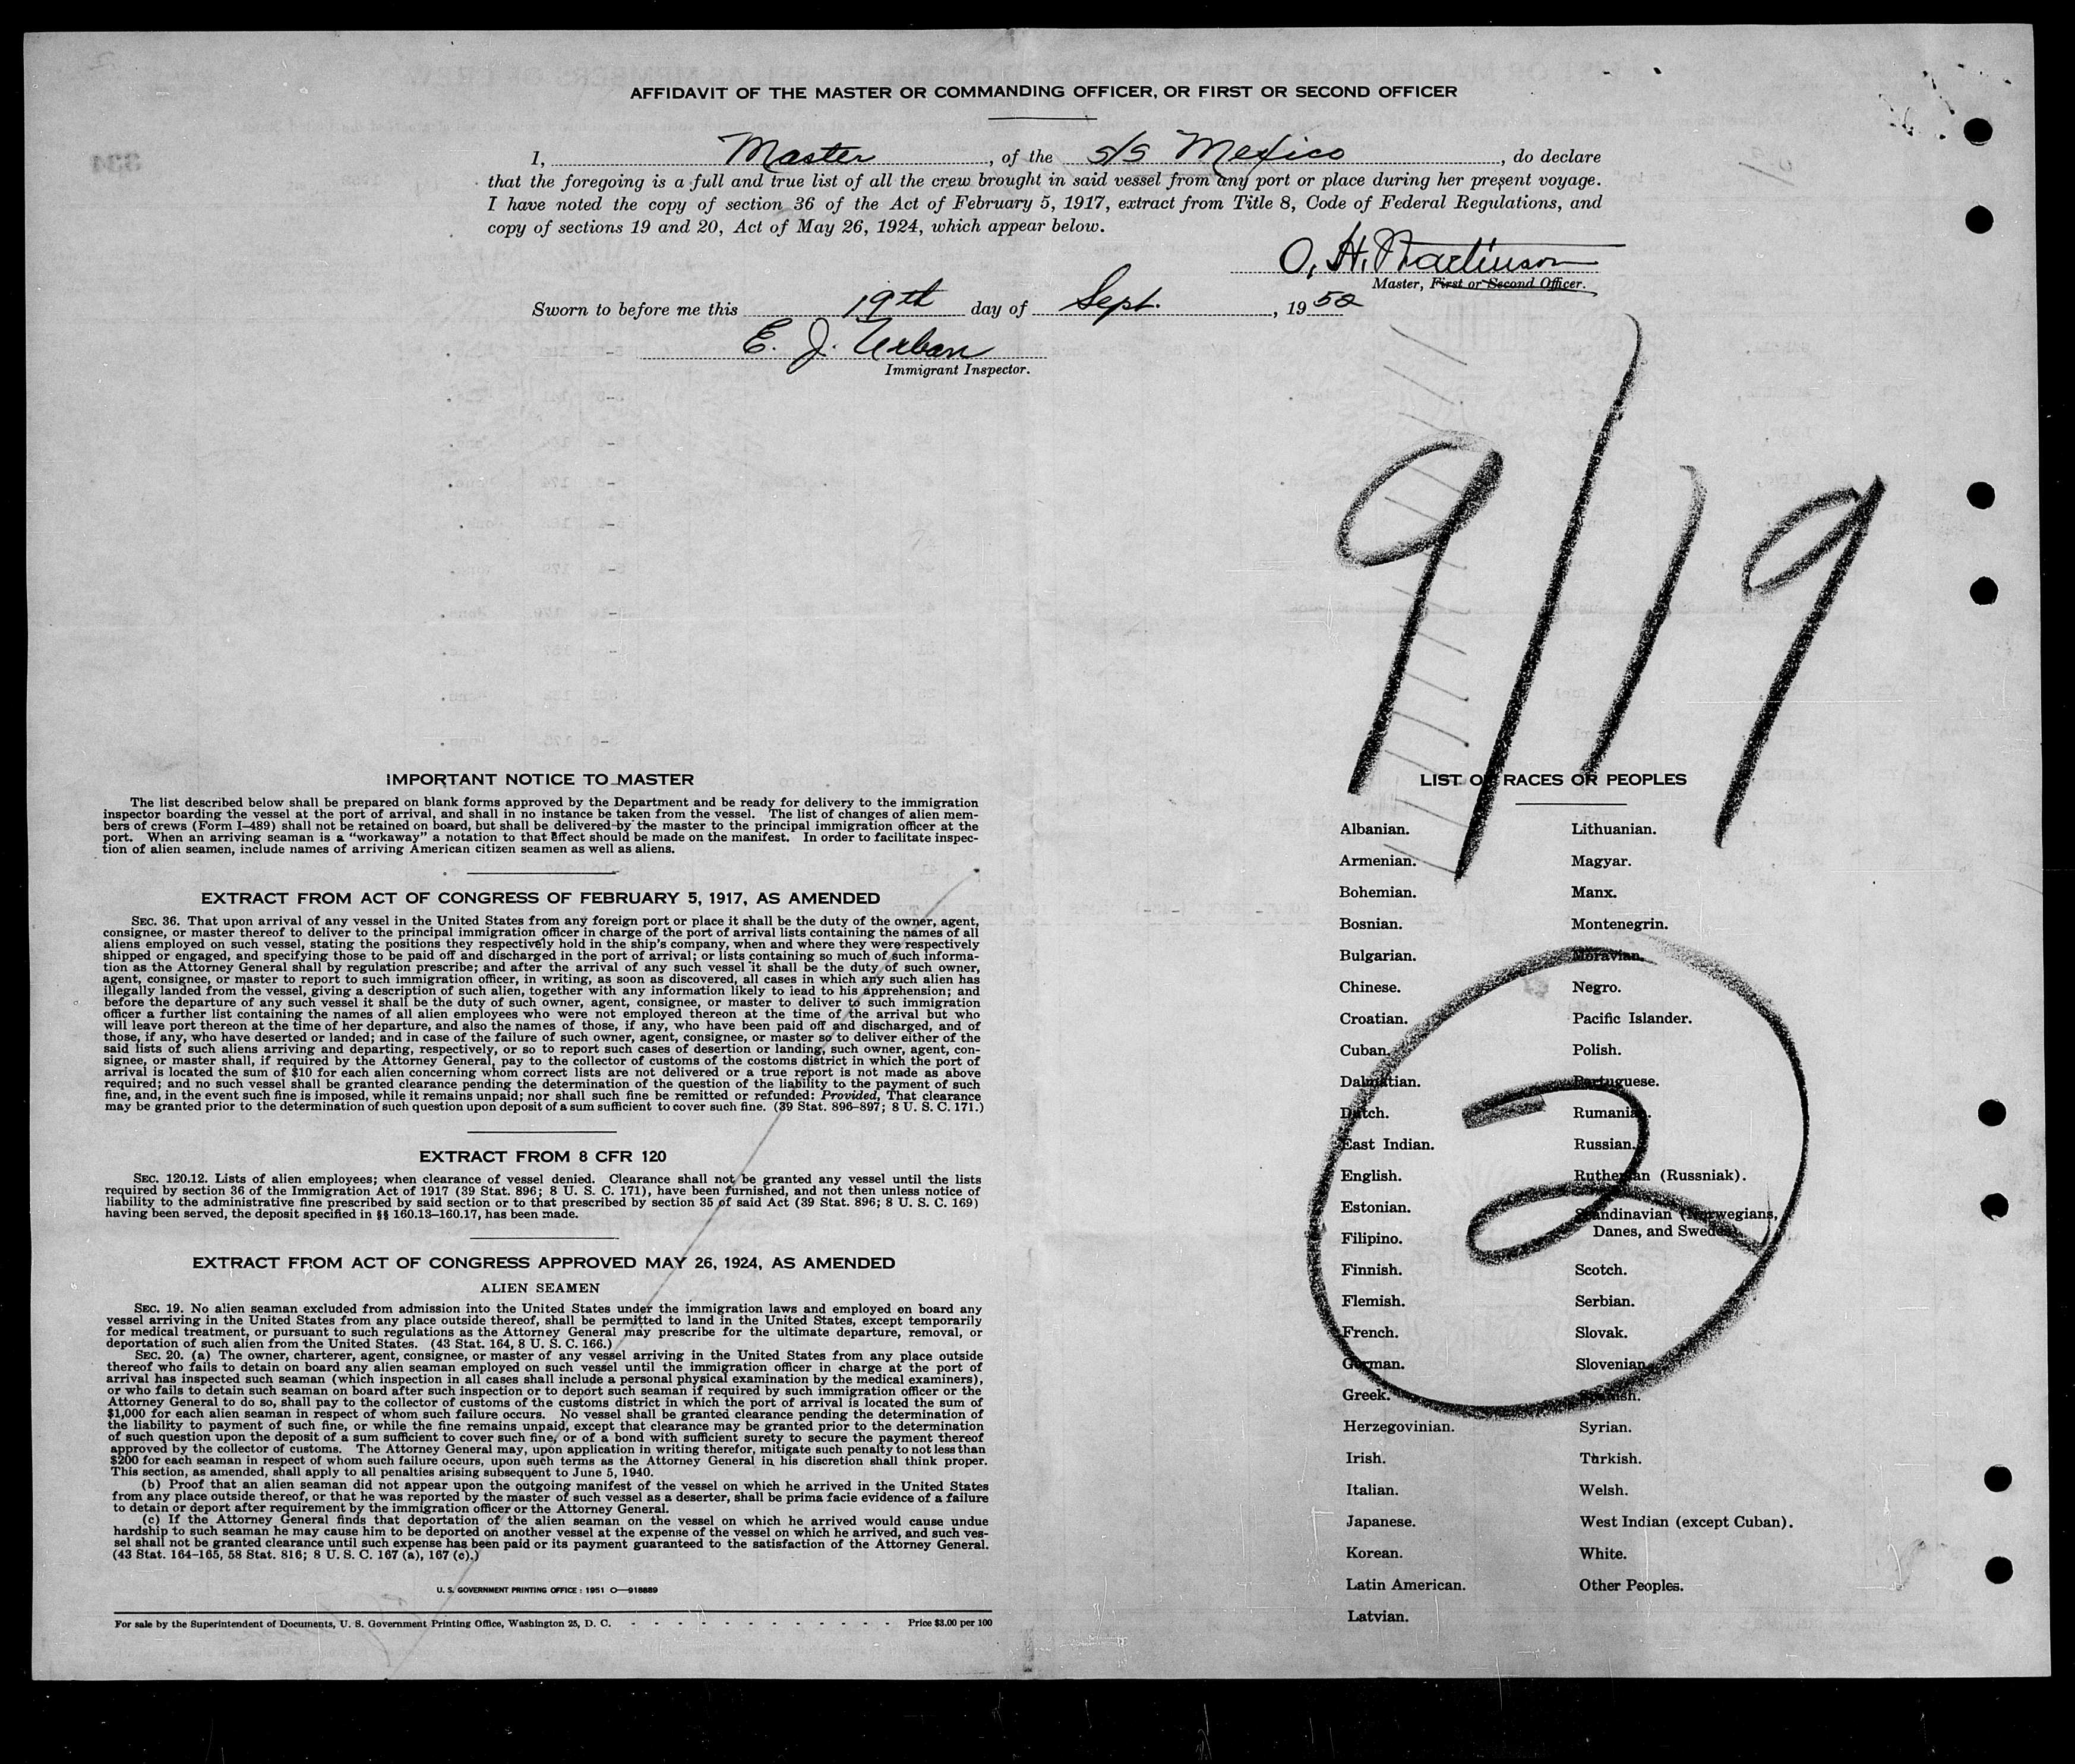 AFFIDAVIT OF THE MASTER OR COMMANDING OFFICER, OR FIRST OR SECOND OFFICER
I, Master, of the S/S Mexico, do declare
that the foregoing is a full and true list of all the crew brought in said vessel from any port or place during her present voyage.
I have noted the copy of section 36 of the Act of February 5, 1917, extract from Title 8, Code of Federal Regulations, and
copy of sections 19 and 20, Act of May 26, 1924, which appear below.
O. H. Martinson
Master, First or Second Officer.
Sworn to before me this 19th day of Sept., 1952
E. J. Urban
Immigrant Inspector.
9/19
IMPORTANT NOTICE TO MASTER
The list described below shall be prepared on blank forms approved by the Department and be ready for delivery to the immigration
inspector boarding the vessel at the port of arrival, and shall in no instance be taken from the vessel. The list of changes of alien mem-
bers of crews (Form I-489) shall not be retained on board, but shall be delivered by the master to the principal immigration officer at the
port. When an arriving seaman is a "workaway" a notation to that effect should be made on the manifest. In order to facilitate inspec-
tion of alien seamen, include names of arriving American citizen seamen as well as aliens.
EXTRACT FROM ACT OF CONGRESS OF FEBRUARY 5, 1917, AS AMENDED
SEC. 36. That upon arrival of any vessel in the United States from any foreign port or place it shall be the duty of the owner, agent,
consignee, or master thereof to deliver to the principal immigration officer in charge of the port of arrival lists containing the names of all
aliens employed on such vessel, stating the positions they respectively hold in the ship's company, when and where they were respectively
shipped or engaged, and specifying those to be paid off and discharged in the port of arrival; or lists containing so much of such informa-
tion as the Attorney General shall by regulation prescribe; and after the arrival of any such vessel it shall be the duty of such owner,
agent, consignee, or master to report to such immigration officer, in writing, as soon as discovered, all cases in which any such alien has
illegally landed from the vessel, giving a description of such alien, together with any information likely to lead to his apprehension; and
before the departure of any such vessel it shall be the duty of such owner, agent, consignee, or master to deliver to such immigration
officer a further list containing the names of all alien employees who were not employed thereon at the time of the arrival but who
will leave port thereon at the time of her departure, and also the names of those, if any, who have been paid off and discharged, and of
those, if any, who have deserted or landed; and in case of the failure of such owner, agent, consignee, or master so to deliver either of the
said lists of such aliens arriving and departing, respectively, or so to report such cases of desertion or landing, such owner, agent, con-
signee, or master shall, if required by the Attorney General, pay to the collector of customs of the costoms district in which the port of
arrival is located the sum of $10 for each alien concerning whom correct lists are not delivered or a true report is not made as above
required; and no such vessel shall be granted clearance pending the determination of the question of the liability to the payment of such
fine, and, in the event such fine is imposed, while it remains unpaid; nor shall such fine be remitted or refunded: Provided, That clearance
may be granted prior to the determination of such question upon deposit of a sum sufficient to cover such fine. (39 Stat. 896-897; 8 U. S. C. 171.)
EXTRACT FROM 8 CFR 120
SEC. 120.12. Lists of alien employees; when clearance of vessel denied. Clearance shall not be granted any vessel until the lists
required by section 36 of the Immigration Act of 1917 (39 Stat. 896; 8 U. S. C. 171), have been furnished, and not then unless notice of
liability to the administrative fine prescribed by said section or to that prescribed by section 35 of said Act (39 Stat. 896; 8 U. S. C. 169)
having been served, the deposit specified in §§ 160.13-160.17, has been made.
EXTRACT FROM ACT OF CONGRESS APPROVED MAY 26, 1924, AS AMENDED
ALIEN SEAMEN
SEC. 19. No alien seaman excluded from admission into the United States under the immigration laws and employed on board any
vessel arriving in the United States from any place outside thereof, shall be permitted to land in the United States, except temporarily
for medical treatment, or pursuant to such regulations as the Attorney General may prescribe for the ultimate departure, removal, or
deportation of such alien from the United States. (43 Stat. 164, 8 U. S. C. 166.)
SEC. 20. (a) The owner, charterer, agent, consignee, or master of any vessel arriving in the United States from any place outside
thereof who fails to detain on board any alien seaman employed on such vessel until the immigration officer in charge at the port of
arrival has inspected such seaman (which inspection in all cases shall include a personal physical examination by the medical examiners),
or who fails to detain such seaman on board after such inspection or to deport such seaman if required by such immigration officer or the
Attorney General to do so, shall pay to the collector of customs of the customs district in which the port of arrival is located the sum of
$1,000 for each alien seaman in respect of whom such failure occurs. No vessel shall be granted clearance pending the determination of
the liability to payment of such fine, or while the fine remains unpaid, except that clearance may be granted prior to the determination
of such question upon the deposit of a sum sufficient to cover such fine, or of a bond with sufficient surety to secure the payment thereof
approved by the collector of customs. The Attorney General may, upon application in writing therefor, mitigate such penalty to not less than
$200 for each seaman in respect of whom such failure occurs, upon such terms as the Attorney General in his discretion shall think proper.
This section, as amended, shall apply to all penalties arising subsequent to June 5, 1940.
(b) Proof that an alien seaman did not appear upon the outgoing manifest of the vessel on which he arrived in the United States
from any place outside thereof, or that he was reported by the master of such vessel as a deserter, shall be prima facie evidence of a failure
to detain or deport after requirement by the immigration officer or the Attorney General.
(c) If the Attorney General finds that deportation of the alien seaman on the vessel on which he arrived would cause undue
hardship to such seaman he may cause him to be deported on another vessel at the expense of the vessel on which he arrived, and such ves-
sel shall not be granted clearance until such expense has been paid or its payment guaranteed to the satisfaction of the Attorney General.
(43 Stat. 164-165, 58 Stat. 816; 8 U. S. C. 167 (a), 167 (c).)
U. S. GOVERNMENT PRINTING OFFICE : 1951 O—918889
For sale by the Superintendent of Documents, U. S. Government Printing Office, Washington 25, D. C. - - - - - - - - - - - - Price $3.00 per 100
LIST OF RACES OR PEOPLES
Albanian.
Armenian.
Bohemian.
Bosnian.
Bulgarian.
Chinese.
Croatian.
Cuban.
Dalmatian.
Dutch.
East Indian.
English.
Estonian.
Filipino.
Finnish.
Flemish.
French.
German.
Greek.
Herzegovinian.
Irish.
Italian.
Japanese.
Korean.
Latin American.
Latvian.
Lithuanian.
Magyar.
Manx.
Montenegrin.
Moravian.
Negro.
Pacific Islander.
Polish.
Portuguese.
Rumanian.
Russian.
Ruthenian (Russniak).
Scandinavian (Norwegians,
Danes, and Swedes).
Scotch.
Serbian.
Slovak.
Slovenian.
Spanish.
Syrian.
Turkish.
Welsh.
West Indian (except Cuban).
White.
Other Peoples.
2